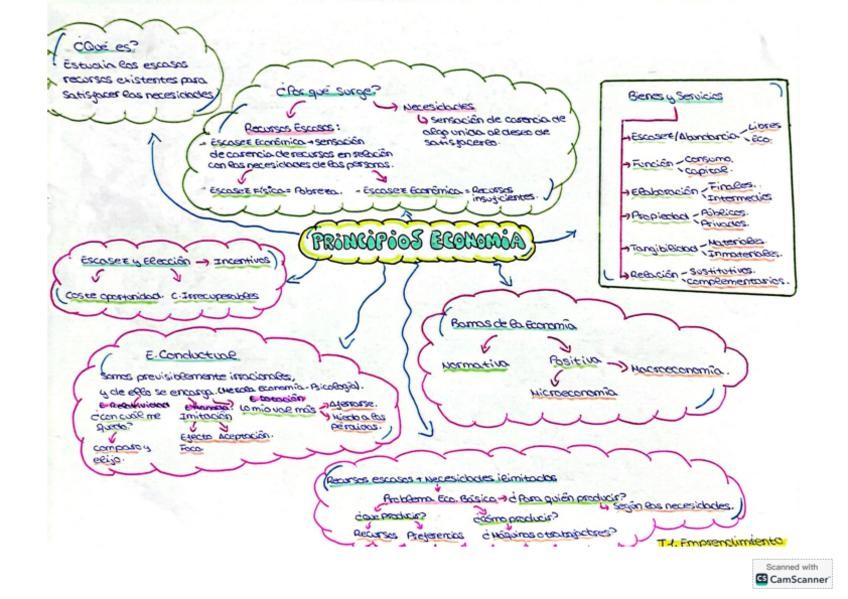 ¿Qué es?
Estudia los escasos
recursos existentes para
satisfacer las necesidades
¿Por qué surge?
Necesidades
Sensación de carencia de
algo unida al deseo de
satisfacerlo.
Recursos Escasos:
- Escasez Económica → sensación
de carencia de recursos en relación
con las necesidades de las personas.
- Escasez Física = Pobreza. - Escasez Económica = Recursos
insuficientes.
Bienes y Servicios
Escasez/Abundancia - Libres
Eco.
Función - Consumo.
Capital.
Elaboración - Finales.
Intermedios
Propiedad - Públicos.
Privados.
Tangibilidad - Materiales
Inmateriales.
Relación - Sustitutivos.
Complementarios.
PRINCIPIOS ECONOMÍA
Escasez y Elección → Incentivos
Coste oportunidad. C. Irrecuperables
E. Conductual
Somos previsiblemente irracionales,
y de ello se encarga. (Mezcla Economía - Psicología).
E. Relatividad
¿Con cuál me
quedo?
Comparo y
elijo.
Imitación
Efecto Aceptación.
Foco.
E. Dotación
Lo mío val más
Aferrarse.
Miedo a las
pérdidas.
Ramas de la Economía
Normativa
Positiva → Macroeconomía.
Microeconomía
Recursos escasos + Necesidades ilimitadas
Problema Eco. Básico → ¿Para quién producir?
Según las necesidades.
¿Qué producir? ¿Cómo producir?
Recursos Preferencias ¿Máquinas o trabajadores?
T-1. Emprendimiento
Scanned with
CS CamScanner